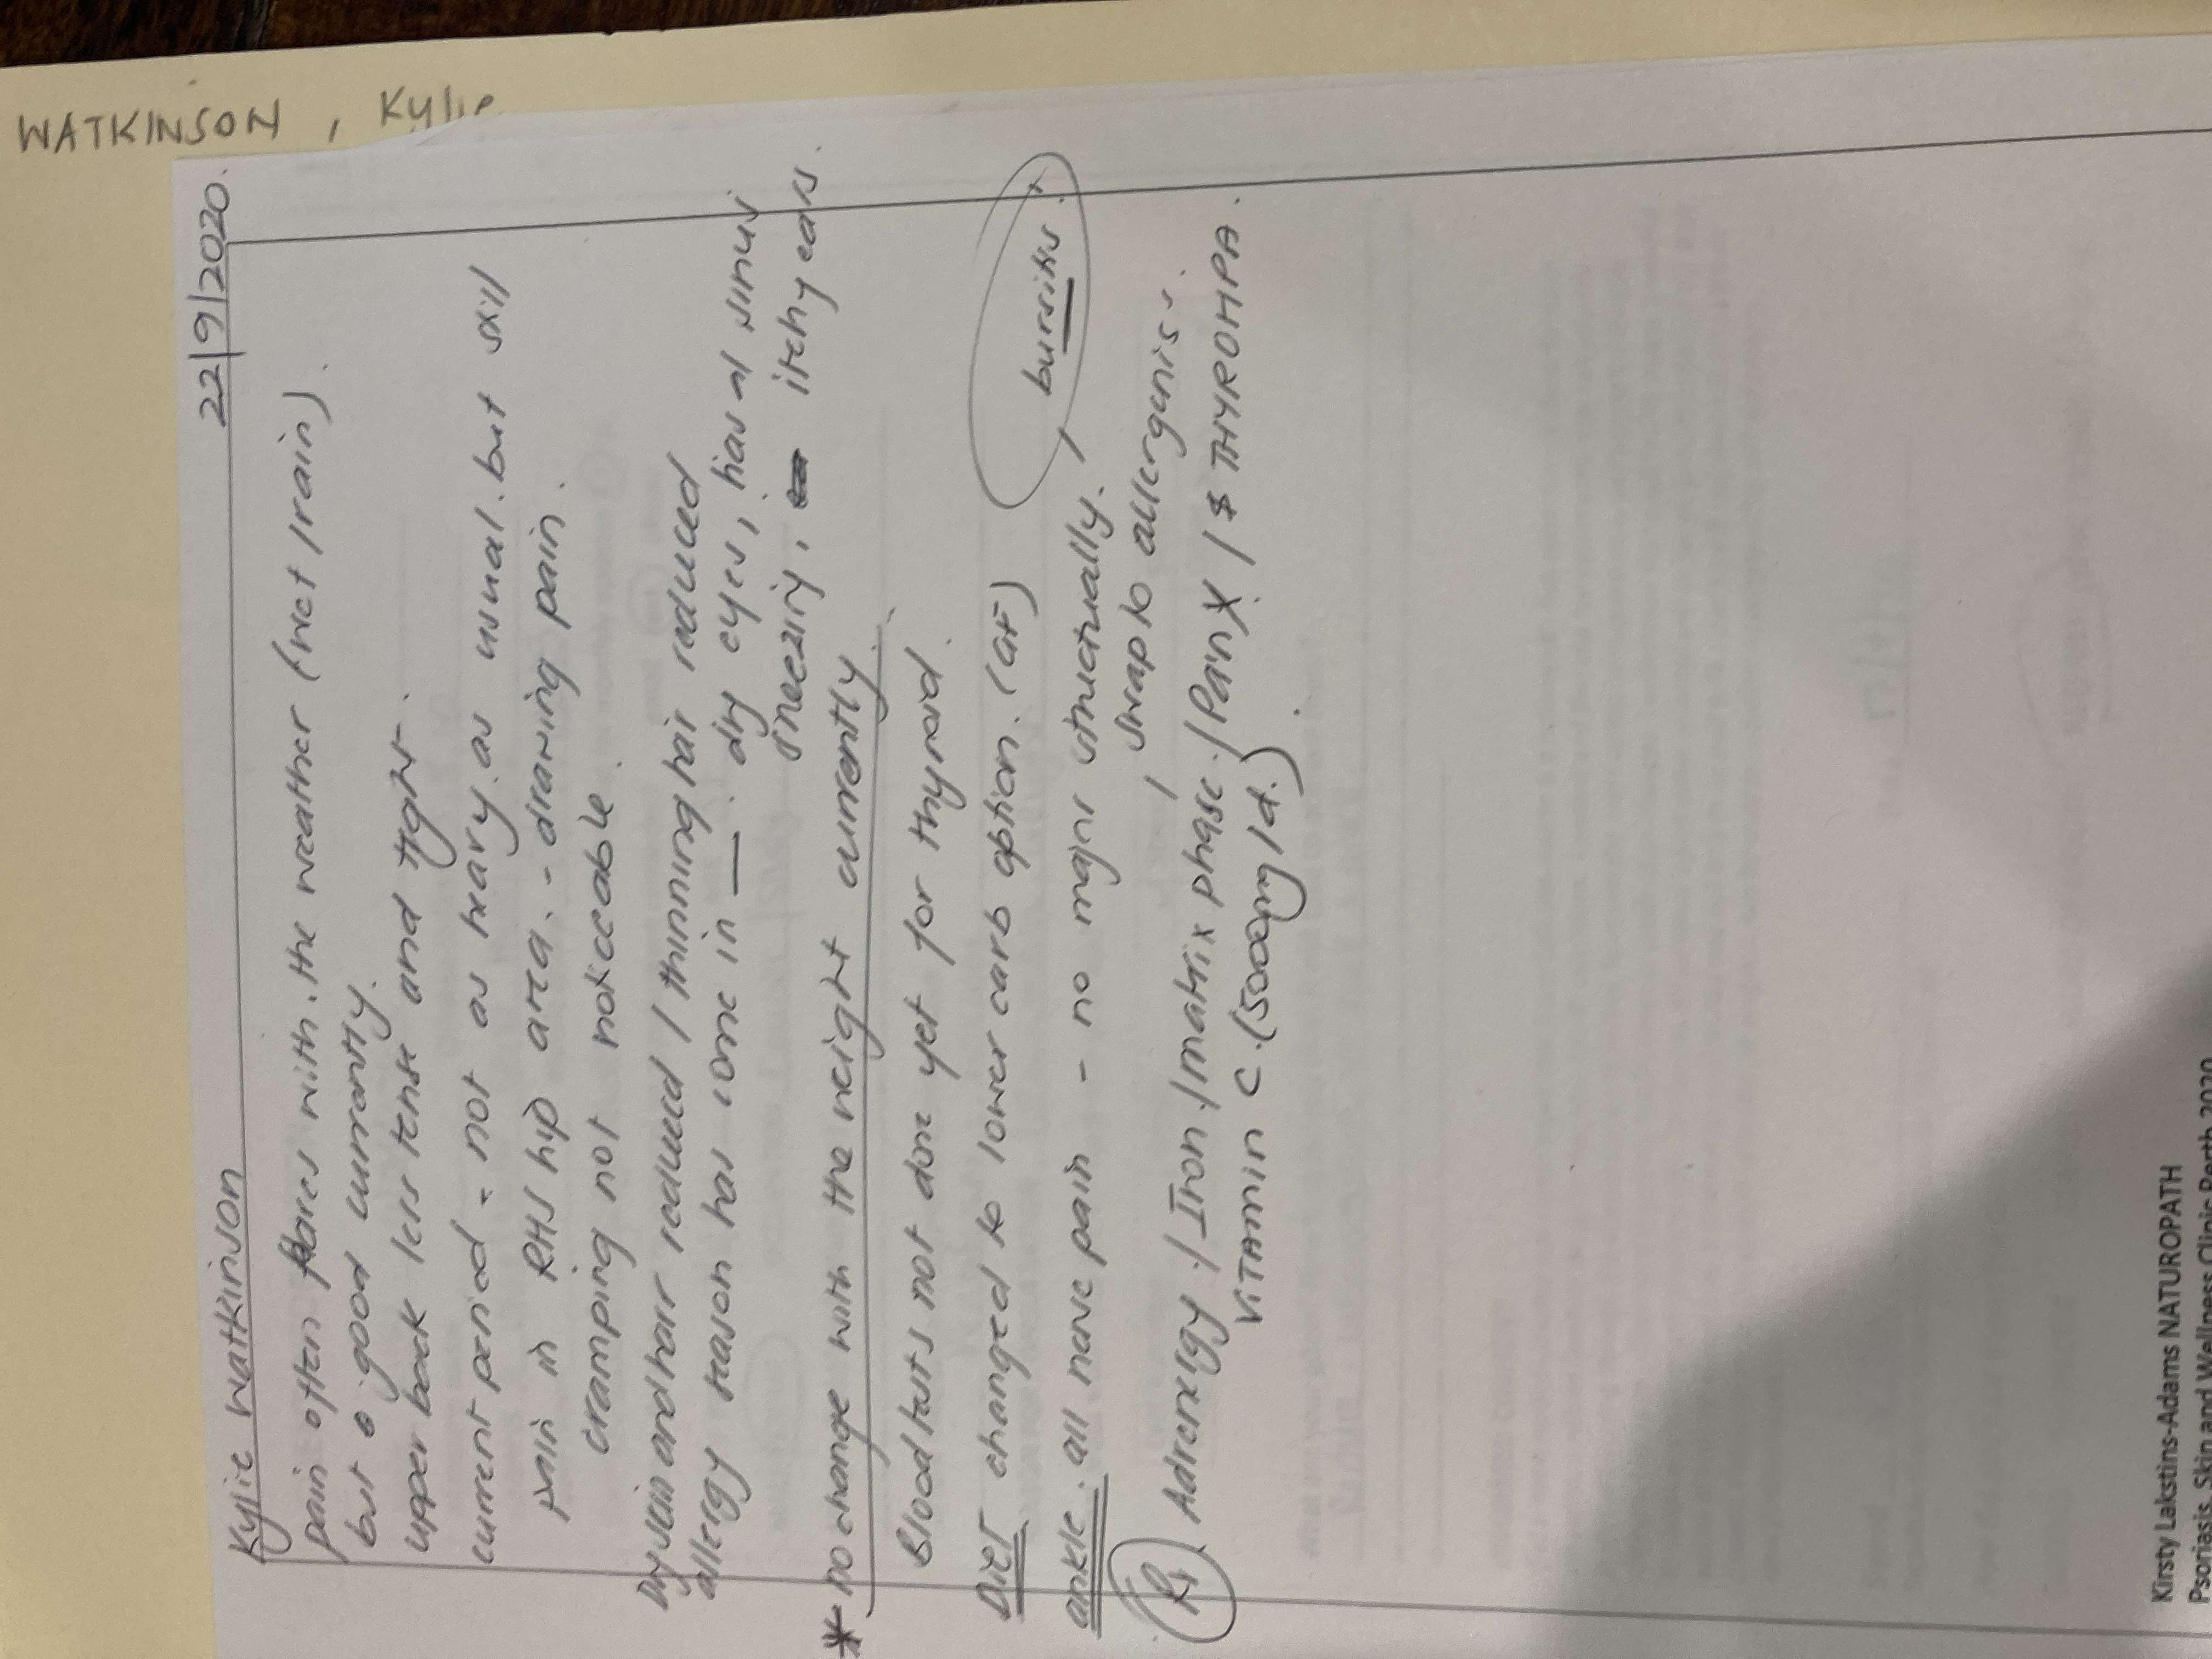 WATKINSON, Kylie
Kylie Watkinson 22/9/2020.
pain often flares with the weather (wet/rain).
but good currently.
upper back less tense and tight.
current period - not as heavy as usual. but still
pain in RHS hip area. - drawing pain.
cramping not noticeable.
Dry skin and hair reduced / thinning hair reduced
allergy season has come in —. dry eyes, nasal sinus
sneezing, itchy ears.
* no change with the weight currently.
Blood tests not done yet for thyroid.
DIET changed to lower carb option. (GF)
bursitis.
ankle. all nerve pain - no major structurally.
swap to allergenis.
Rx Adrenergy / Iron / matrix phase / Pain X / $ THYROHPA.
VITAMIN C. (5000mg/d.)
Kirsty Lakstins-Adams NATUROPATH
Psoriasis, Skin and Wellness Clinic Perth 2020